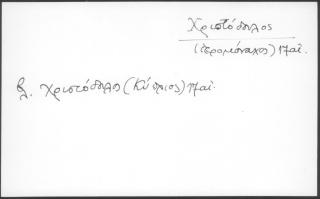 Χριστόδουλος
(ιερομόναχος) 17 αἰ.
βλ. Χριστόδουλος (Κύπριος) 17 αἰ.